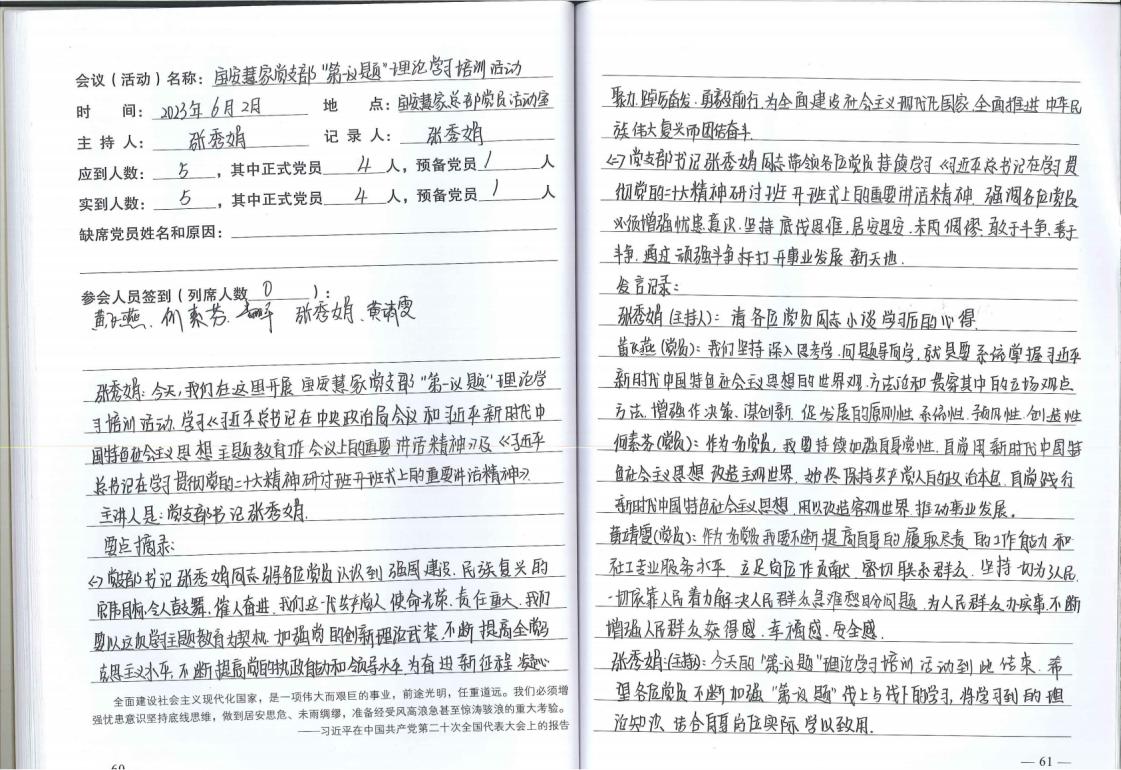 会议（活动）名称：宝安慧家党支部“第一议题”理论学习培训活动
时 间：2023年6月2日 地 点：宝安慧家总部党员活动室
主 持 人：张秀娟 记 录 人：张秀娟
应到人数：5，其中正式党员 4 人，预备党员 1 人
实到人数：5，其中正式党员 4 人，预备党员 1 人
缺席党员姓名和原因：
参会人员签到（列席人数 0 ）：
黄飞燕、何素芬、 张秀娟、黄靖雯
张秀娟：今天，我们在这里开展宝安慧家党支部“第一议题”理论学
习培训活动，学习《习近平总书记在中央政治局会议和习近平新时代中
国特色社会主义思想主题教育工作会议上的重要讲话精神》及《习近平
总书记在学习贯彻党的二十大精神研讨班开班式上的重要讲话精神》
主讲人是：党支部书记张秀娟.
要点摘录：
<一>党支部书记张秀娟同志引领各位党员认识到强国建设、民族复兴的
宏伟目标令人鼓舞、催人奋进，我们这一代共产党人使命光荣、责任重大，我们
要以这次学习主题教育为契机，加强党的创新理论武装，不断提高全党马
克思主义水平，不断提高党的执政能力和领导水平，为奋进新征程凝心
全面建设社会主义现代化国家，是一项伟大而艰巨的事业，前途光明，任重道远。我们必须增
强忧患意识坚持底线思维，做到居安思危、未雨绸缪，准备经受风高浪急甚至惊涛骇浪的重大考验。
——习近平在中国共产党第二十次全国代表大会上的报告
60
聚力、踔厉奋发、勇毅前行，为全面建设社会主义现代化国家、全面推进中华民
族伟大复兴而团结奋斗.
<二>党支部书记张秀娟同志带领各位党员持续学习《习近平总书记在学习贯
彻党的二十大精神研讨班开班式上的重要讲话精神，强调各位党员
必须增强忧患意识，坚持底线思维，居安思安、未雨绸缪，敢于斗争、善于
斗争，通过顽强斗争打开事业发展新天地.
发言记录：
张秀娟（主持人）：请各位党员同志小谈学习后的心得.
黄飞燕（党员）：我们坚持深入思考学、问题导向学，就是要系统掌握习近平
新时代中国特色社会主义思想的世界观、方法论和贯穿其中的立场观点
方法，增强作决策、谋创新、促发展的原则性、系统性、预见性、创造性
何素芬（党员）：作为党员，我要持续加强自身党性，自觉用新时代中国特
色社会主义思想改造主观世界，始终保持共产党人的政治本色，自觉践行
新时代中国特色社会主义思想，用以改造客观世界、推动事业发展。
黄靖雯（党员）：作为党员我要不断提高自身的履职尽责的工作能力和
社工专业服务水平，立足岗位作贡献，密切联系群众，坚持一切为了人民，
一切依靠人民，着力解决人民群众急难愁盼问题，为人民群众办实事，不断
增强人民群众获得感、幸福感、安全感.
张秀娟（主持）：今天的“第一议题”理论学习培训活动到此结束，希
望各位党员不断加强“第一议题”线上与线下的学习，将学习到的理
论知识，结合自身岗位实际，学以致用.
— 61 —